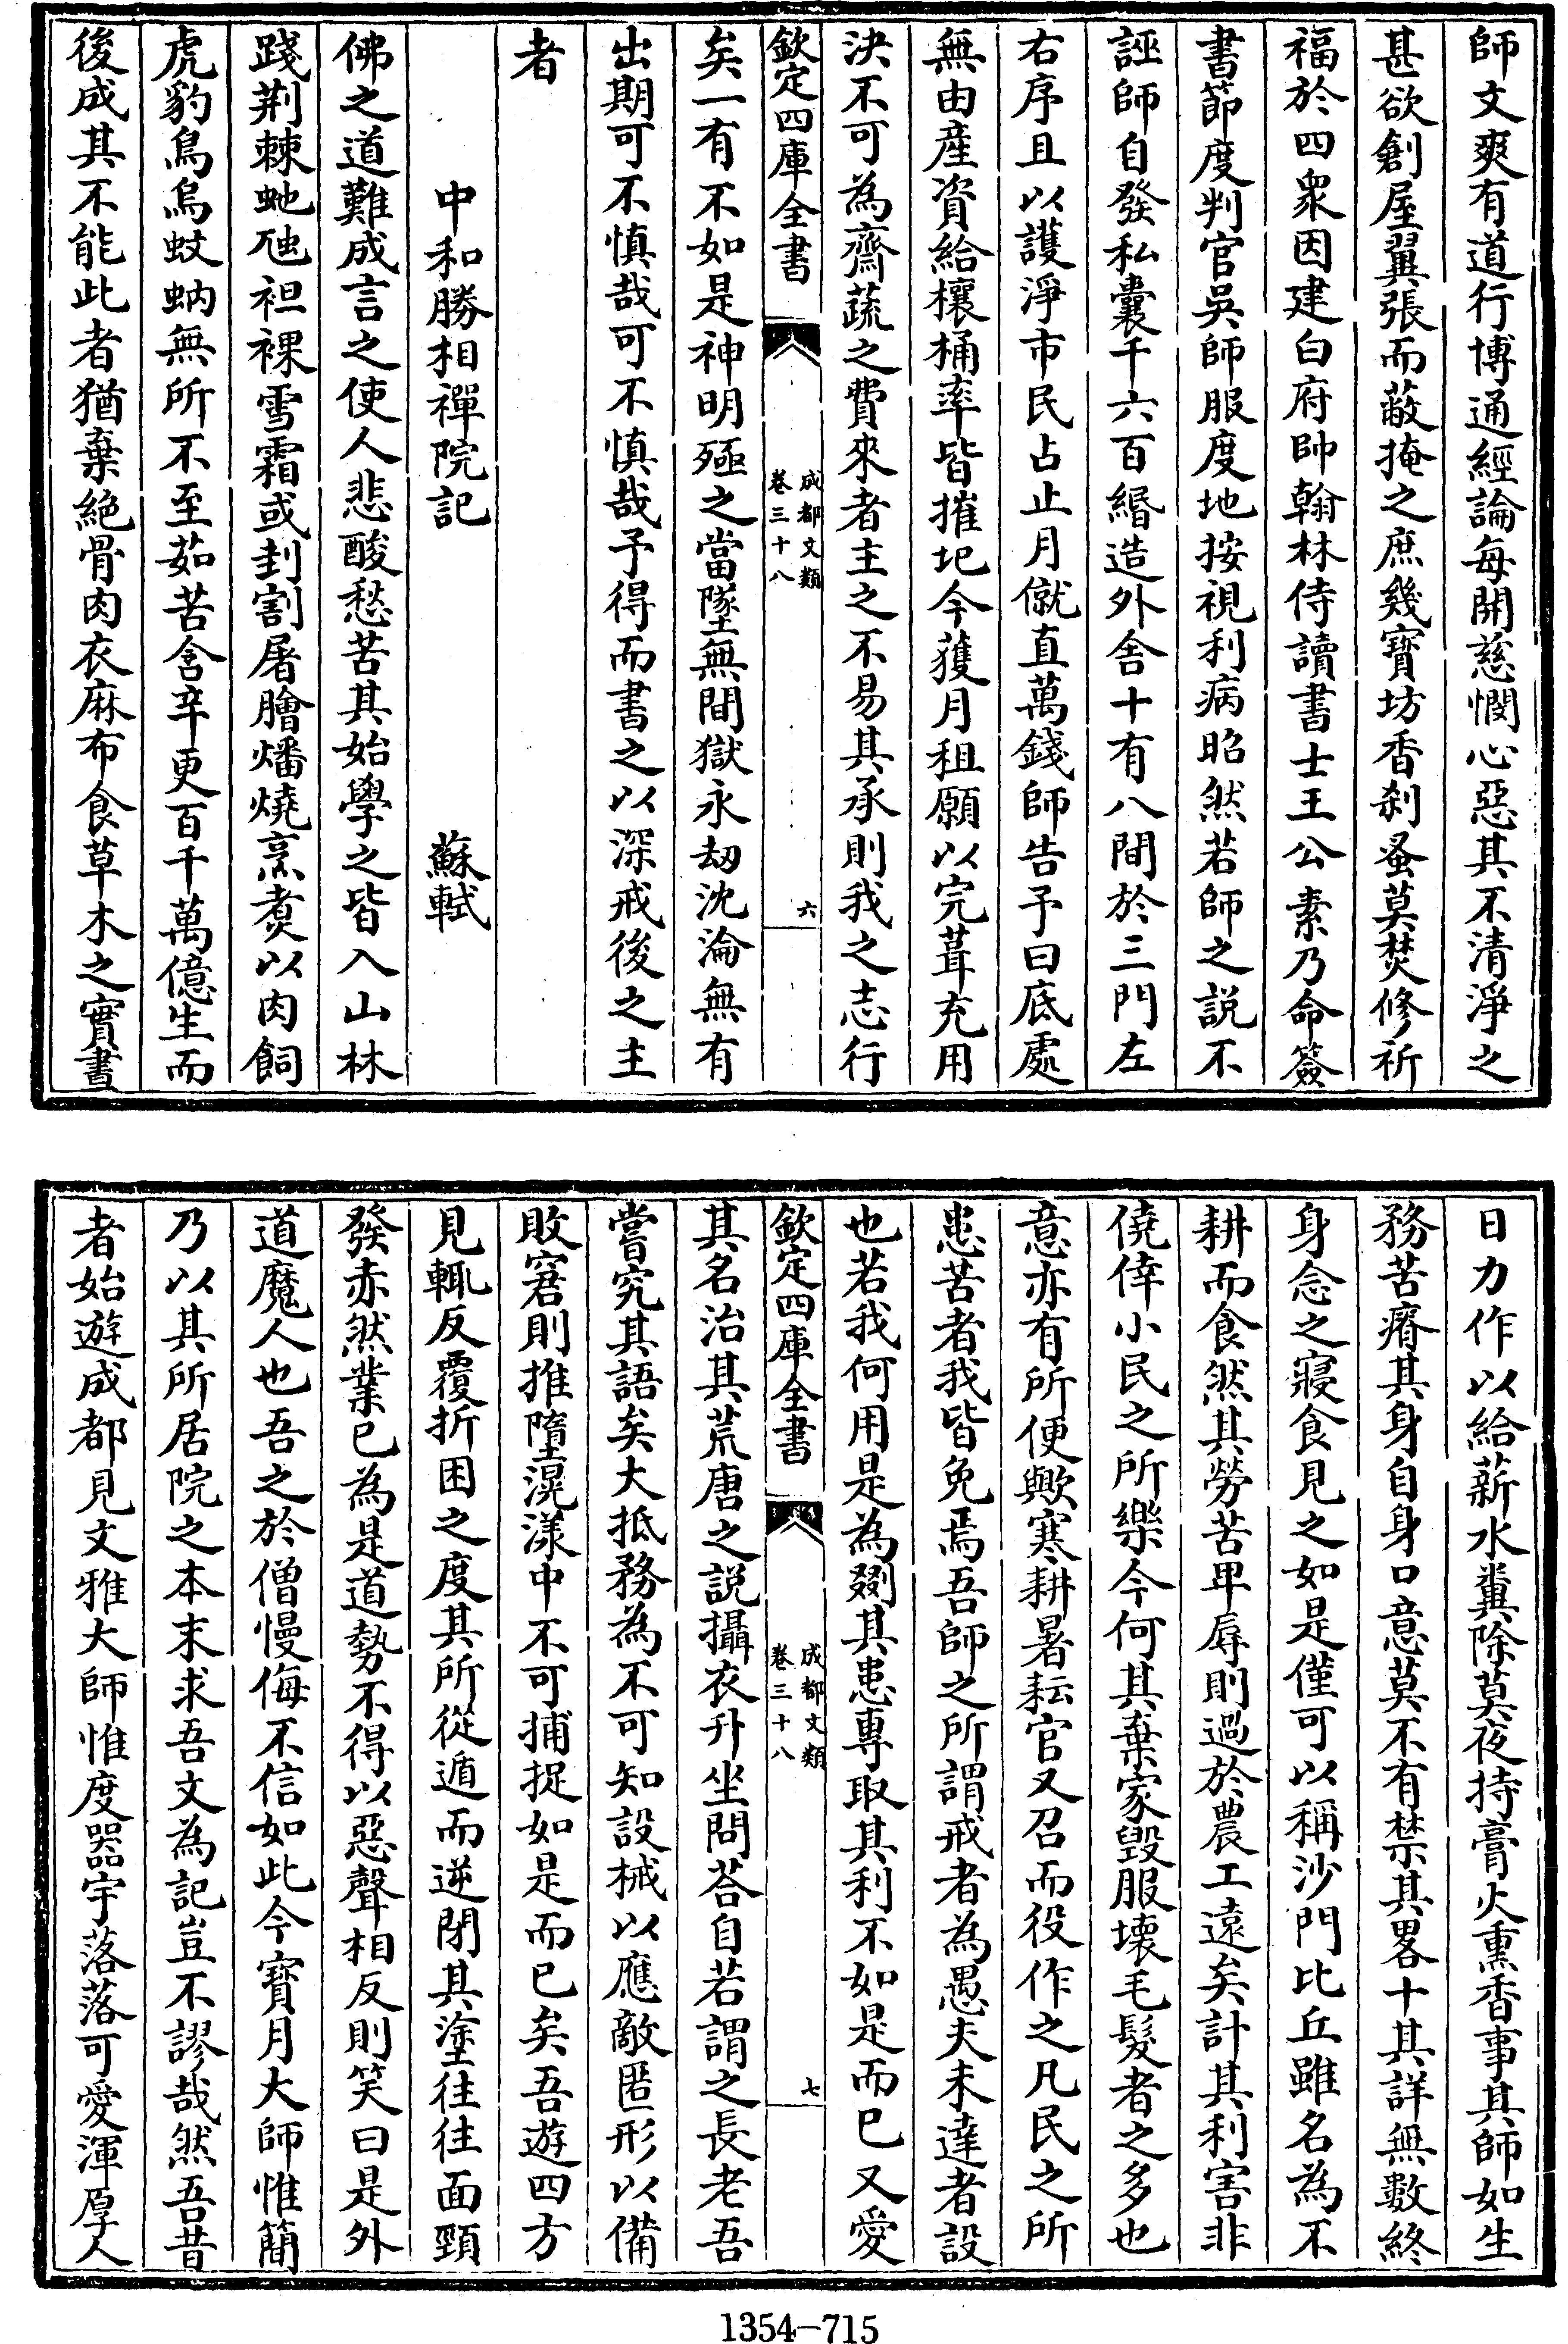 師文爽有道行博通經論每開慈憫心惡其不清淨之
甚欲創屋翼張而蔽掩之庶幾寳坊香刹蚤莫焚修祈
福於四衆因建白府帥翰林侍讀書士王公素乃命簽
書節度判官吳師服度地按視利病昭然若師之說不
誣師自發私囊千六百緡造外舍十有八間於三門左
右序且以護淨市民占止月僦直萬錢師告予曰底處
無由産資給櫰桶率皆摧圮今獲月租願以完葺充用
決不可為齋蔬之費來者主之不易其承則我之志行
欽定四庫全書
成都文類
卷三十八
六
矣一有不如是神明殛之當墜無間獄永劫沈淪無有
出期可不慎哉可不慎哉予得而書之以深戒後之主
者
中和勝相禪院記
蘇軾
佛之道難成言之使人悲酸愁苦其始學之皆入山林
踐荆棘虵虺袒裸雪霜或刲割屠膾燔燒烹煑以肉飼
虎豹鳥烏蚊蚋無所不至茹苦含辛更百千萬億生而
後成其不能此者猶棄絶骨肉衣麻布食草木之實晝
日力作以給薪水糞除莫夜持膏火熏香事其師如生
務苦瘠其身自身口意莫不有禁其畧十其詳無數終
身念之寢食見之如是僅可以稱沙門比丘雖名為不
耕而食然其勞苦卑辱則過於農工遠矣計其利害非
僥倖小民之所樂今何其棄家毀服壞毛髮者之多也
意亦有所便歟寒耕暑耘官又召而役作之凡民之所
患苦者我皆免焉吾師之所謂戒者為愚夫未達者設
也若我何用是為剟其患專取其利不如是而已又愛
欽定四庫全書
成都文類
卷三十八
七
其名治其荒唐之說攝衣升坐問荅自若謂之長老吾
嘗究其語矣大抵務為不可知設械以應敵匿形以備
敗窘則推墮滉漾中不可捕捉如是而已矣吾遊四方
見輒反覆折困之度其所從遁而逆閉其塗往往面頸
發赤然業已為是道勢不得以惡聲相反則笑曰是外
道魔人也吾之於僧慢侮不信如此今寳月大師惟簡
乃以其所居院之本末求吾文為記豈不謬哉然吾昔
者始遊成都見文雅大師惟度器宇落落可愛渾厚人
1354-715